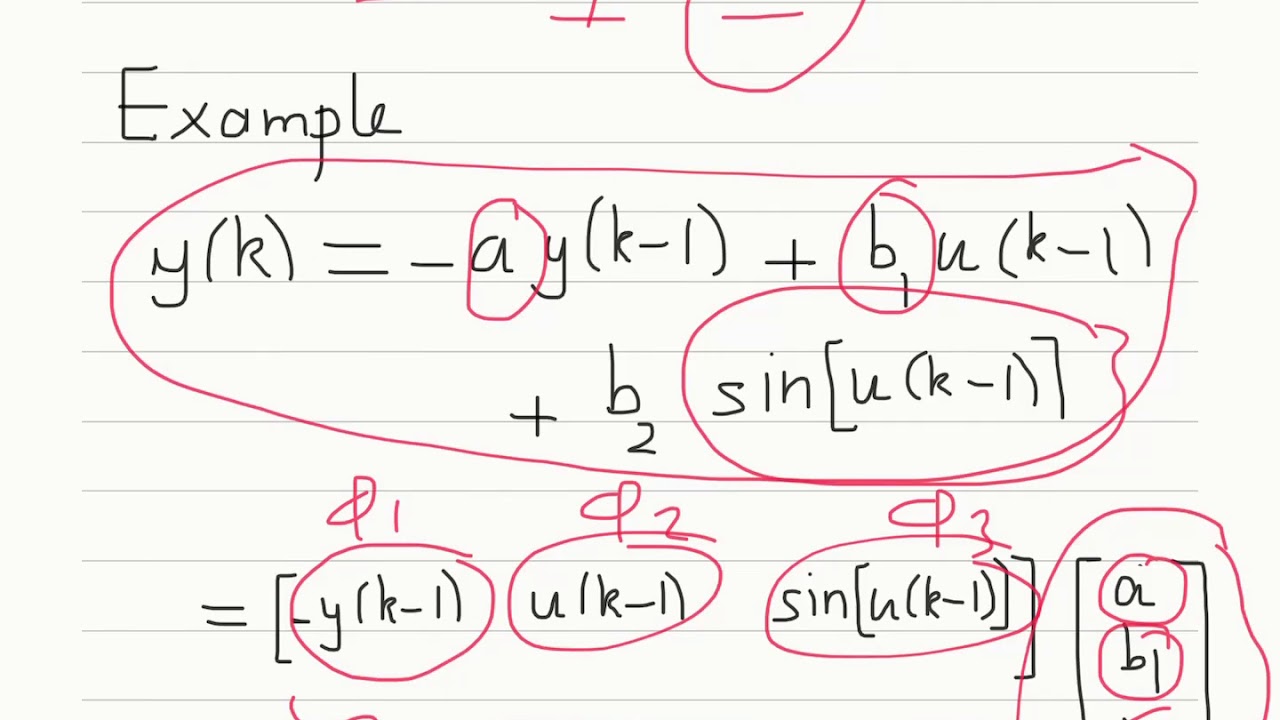 Example
y(k) = -a y(k-1) + b₁ u(k-1)
+ b₂ sin[u(k-1)]
φ₁ φ₂ φ₃
= [-y(k-1) u(k-1) sin[u(k-1)]] [a
b₁